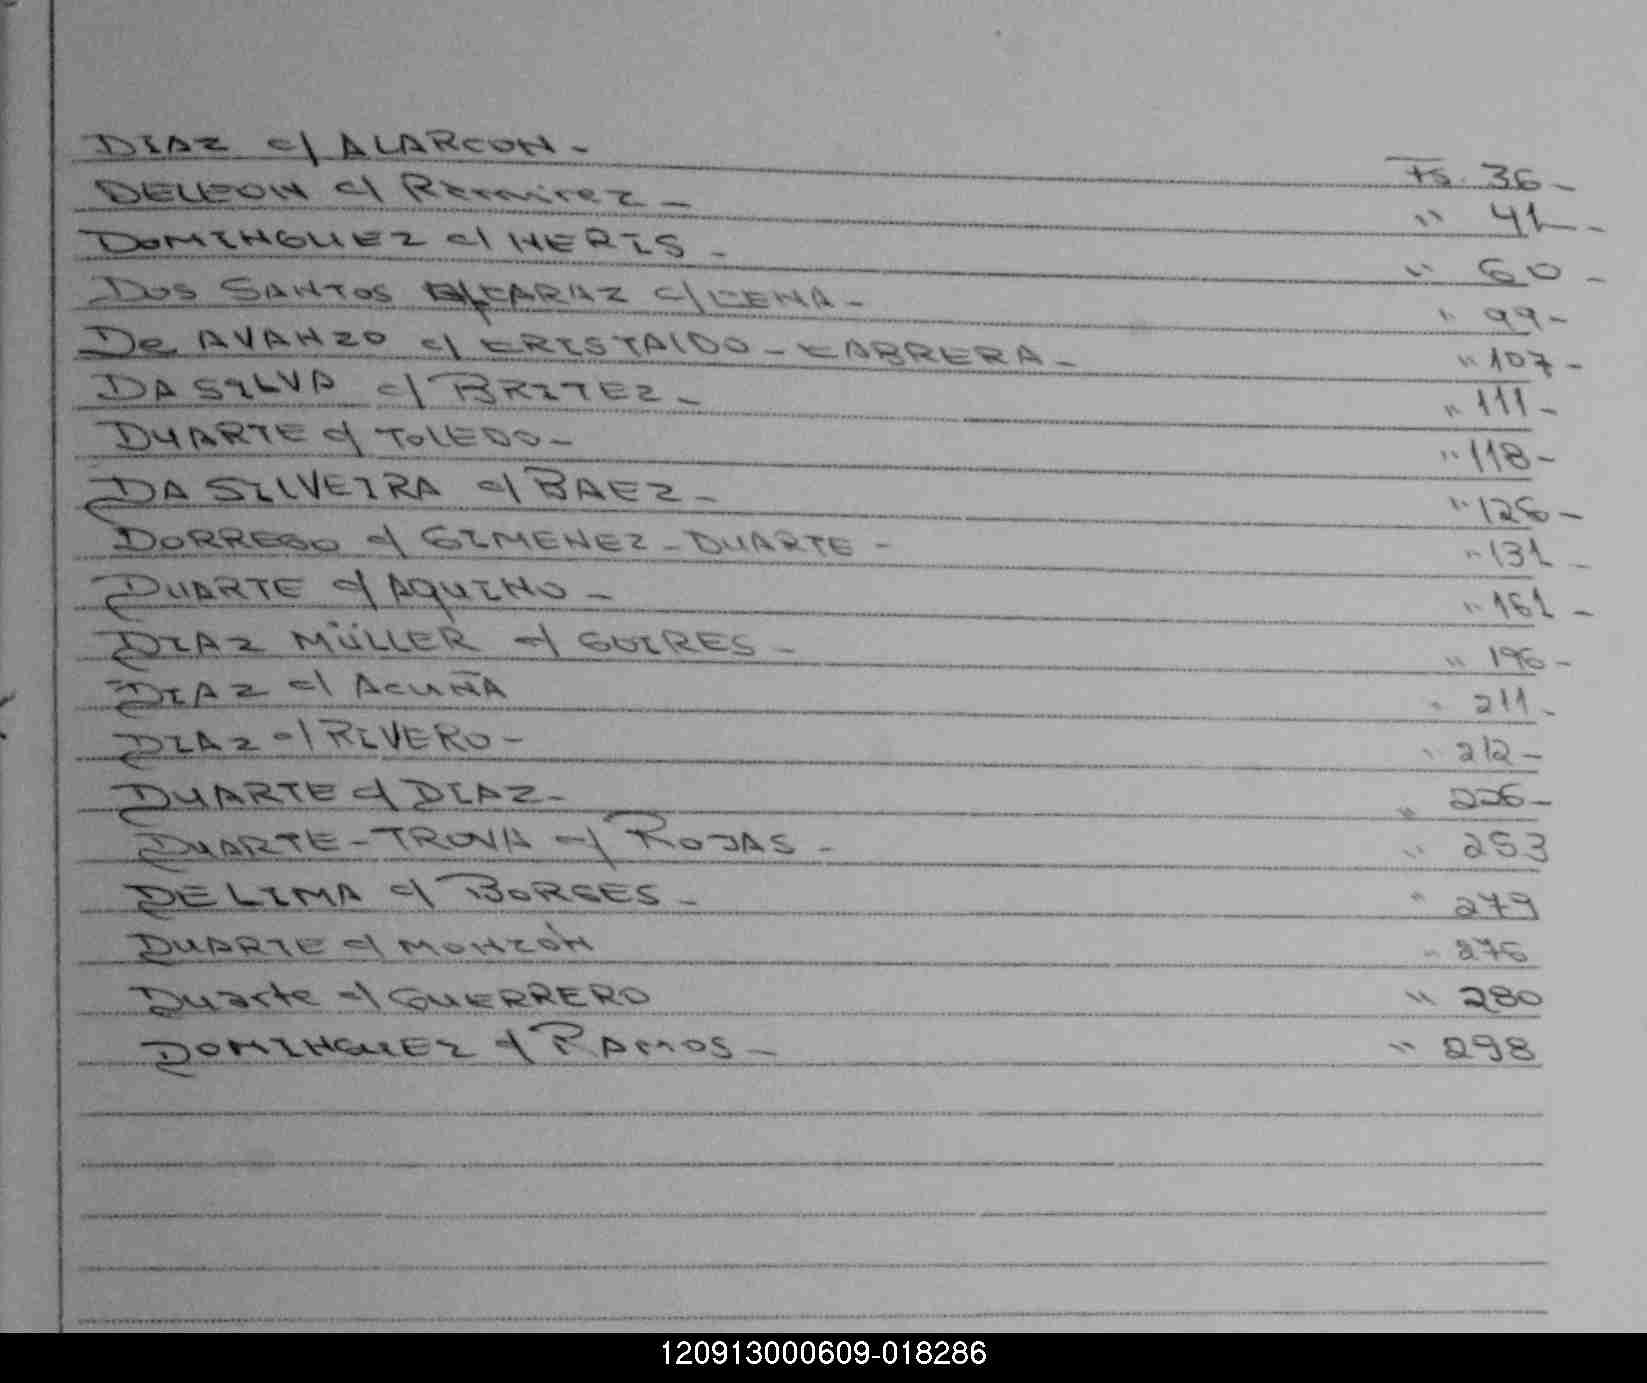 DIAZ c/ ALARCON - Fs. 36 -
DELEON c/ Ramirez - " 41 -
DOMINGUEZ c/ NERIS - " 60 -
Dos SANTOS c/ CENA - " 99 -
De AVANZO c/ CRISTALDO - CABRERA - " 107 -
DA SILVA c/ BRITEZ - " 111 -
DUARTE c/ TOLEDO - " 118 -
DA SILVEIRA c/ BAEZ - " 126 -
DORREGO c/ GIMENEZ - DUARTE - " 131 -
DUARTE c/ AQUINO - " 161 -
DIAZ MÜLLER c/ GUIRES - " 196 -
DIAZ c/ ACUÑA " 211 -
DIAZ c/ RIVERO - " 212 -
DUARTE c/ DIAZ - " 226 -
DUARTE - TROVA c/ ROJAS - " 253
DE LIMA c/ BORGES - " 279
DUARTE c/ MONZÓN " 276
Duarte c/ GUERRERO " 280
DOMINGUEZ c/ RAMOS - " 298
120913000609-018286